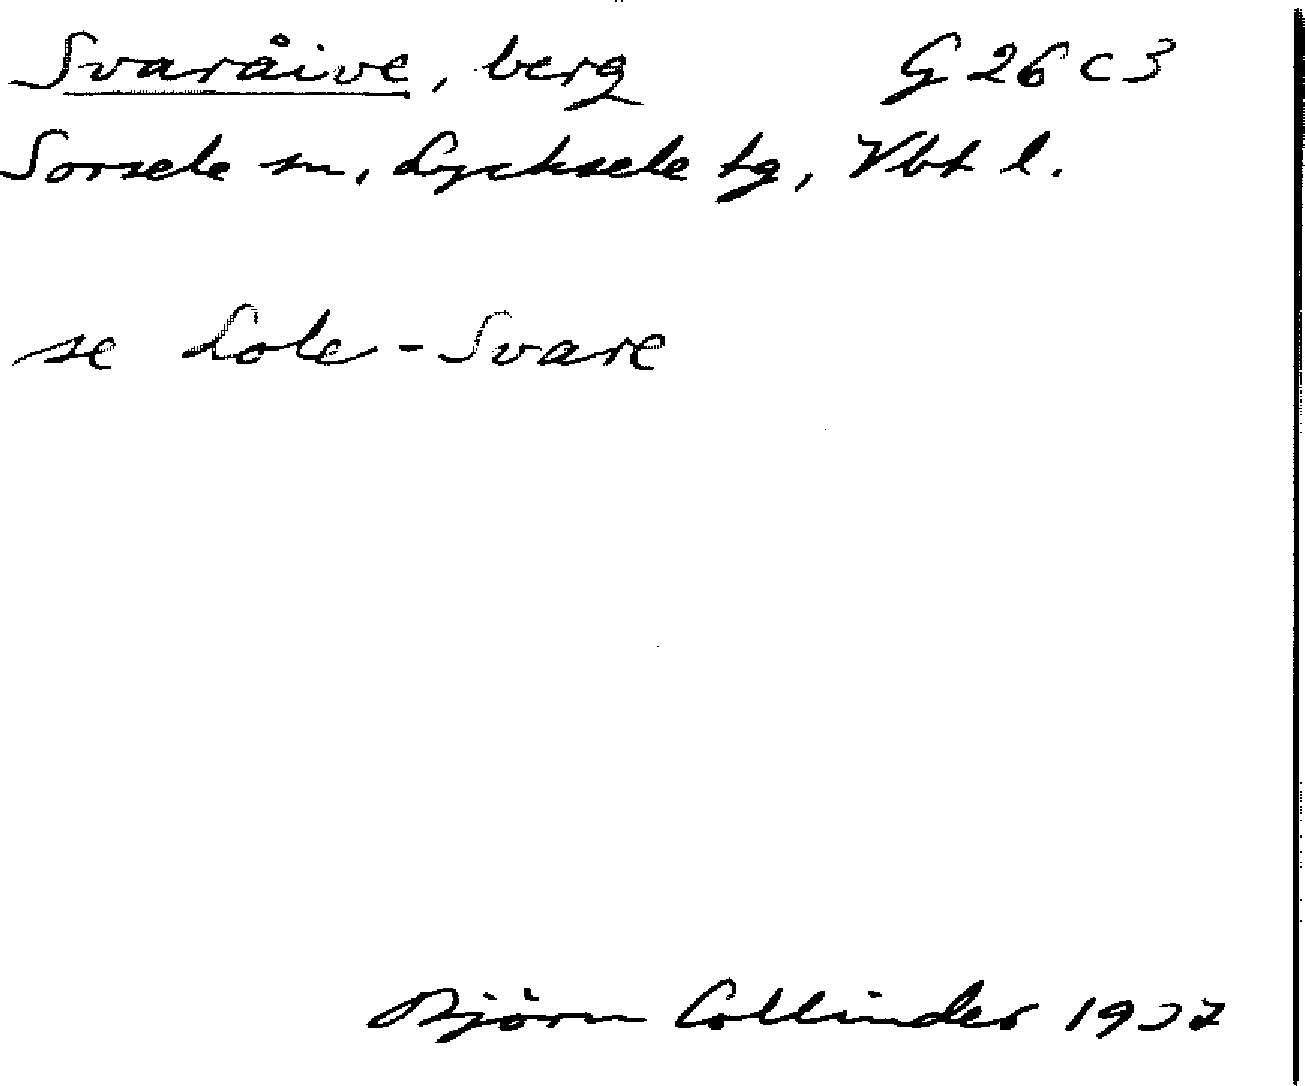 Svaråive, berg G 26 C 3
Sorsele sn, Lycksele tg, Vbt l.
se Lole-Svare
Björn Collinder 1937